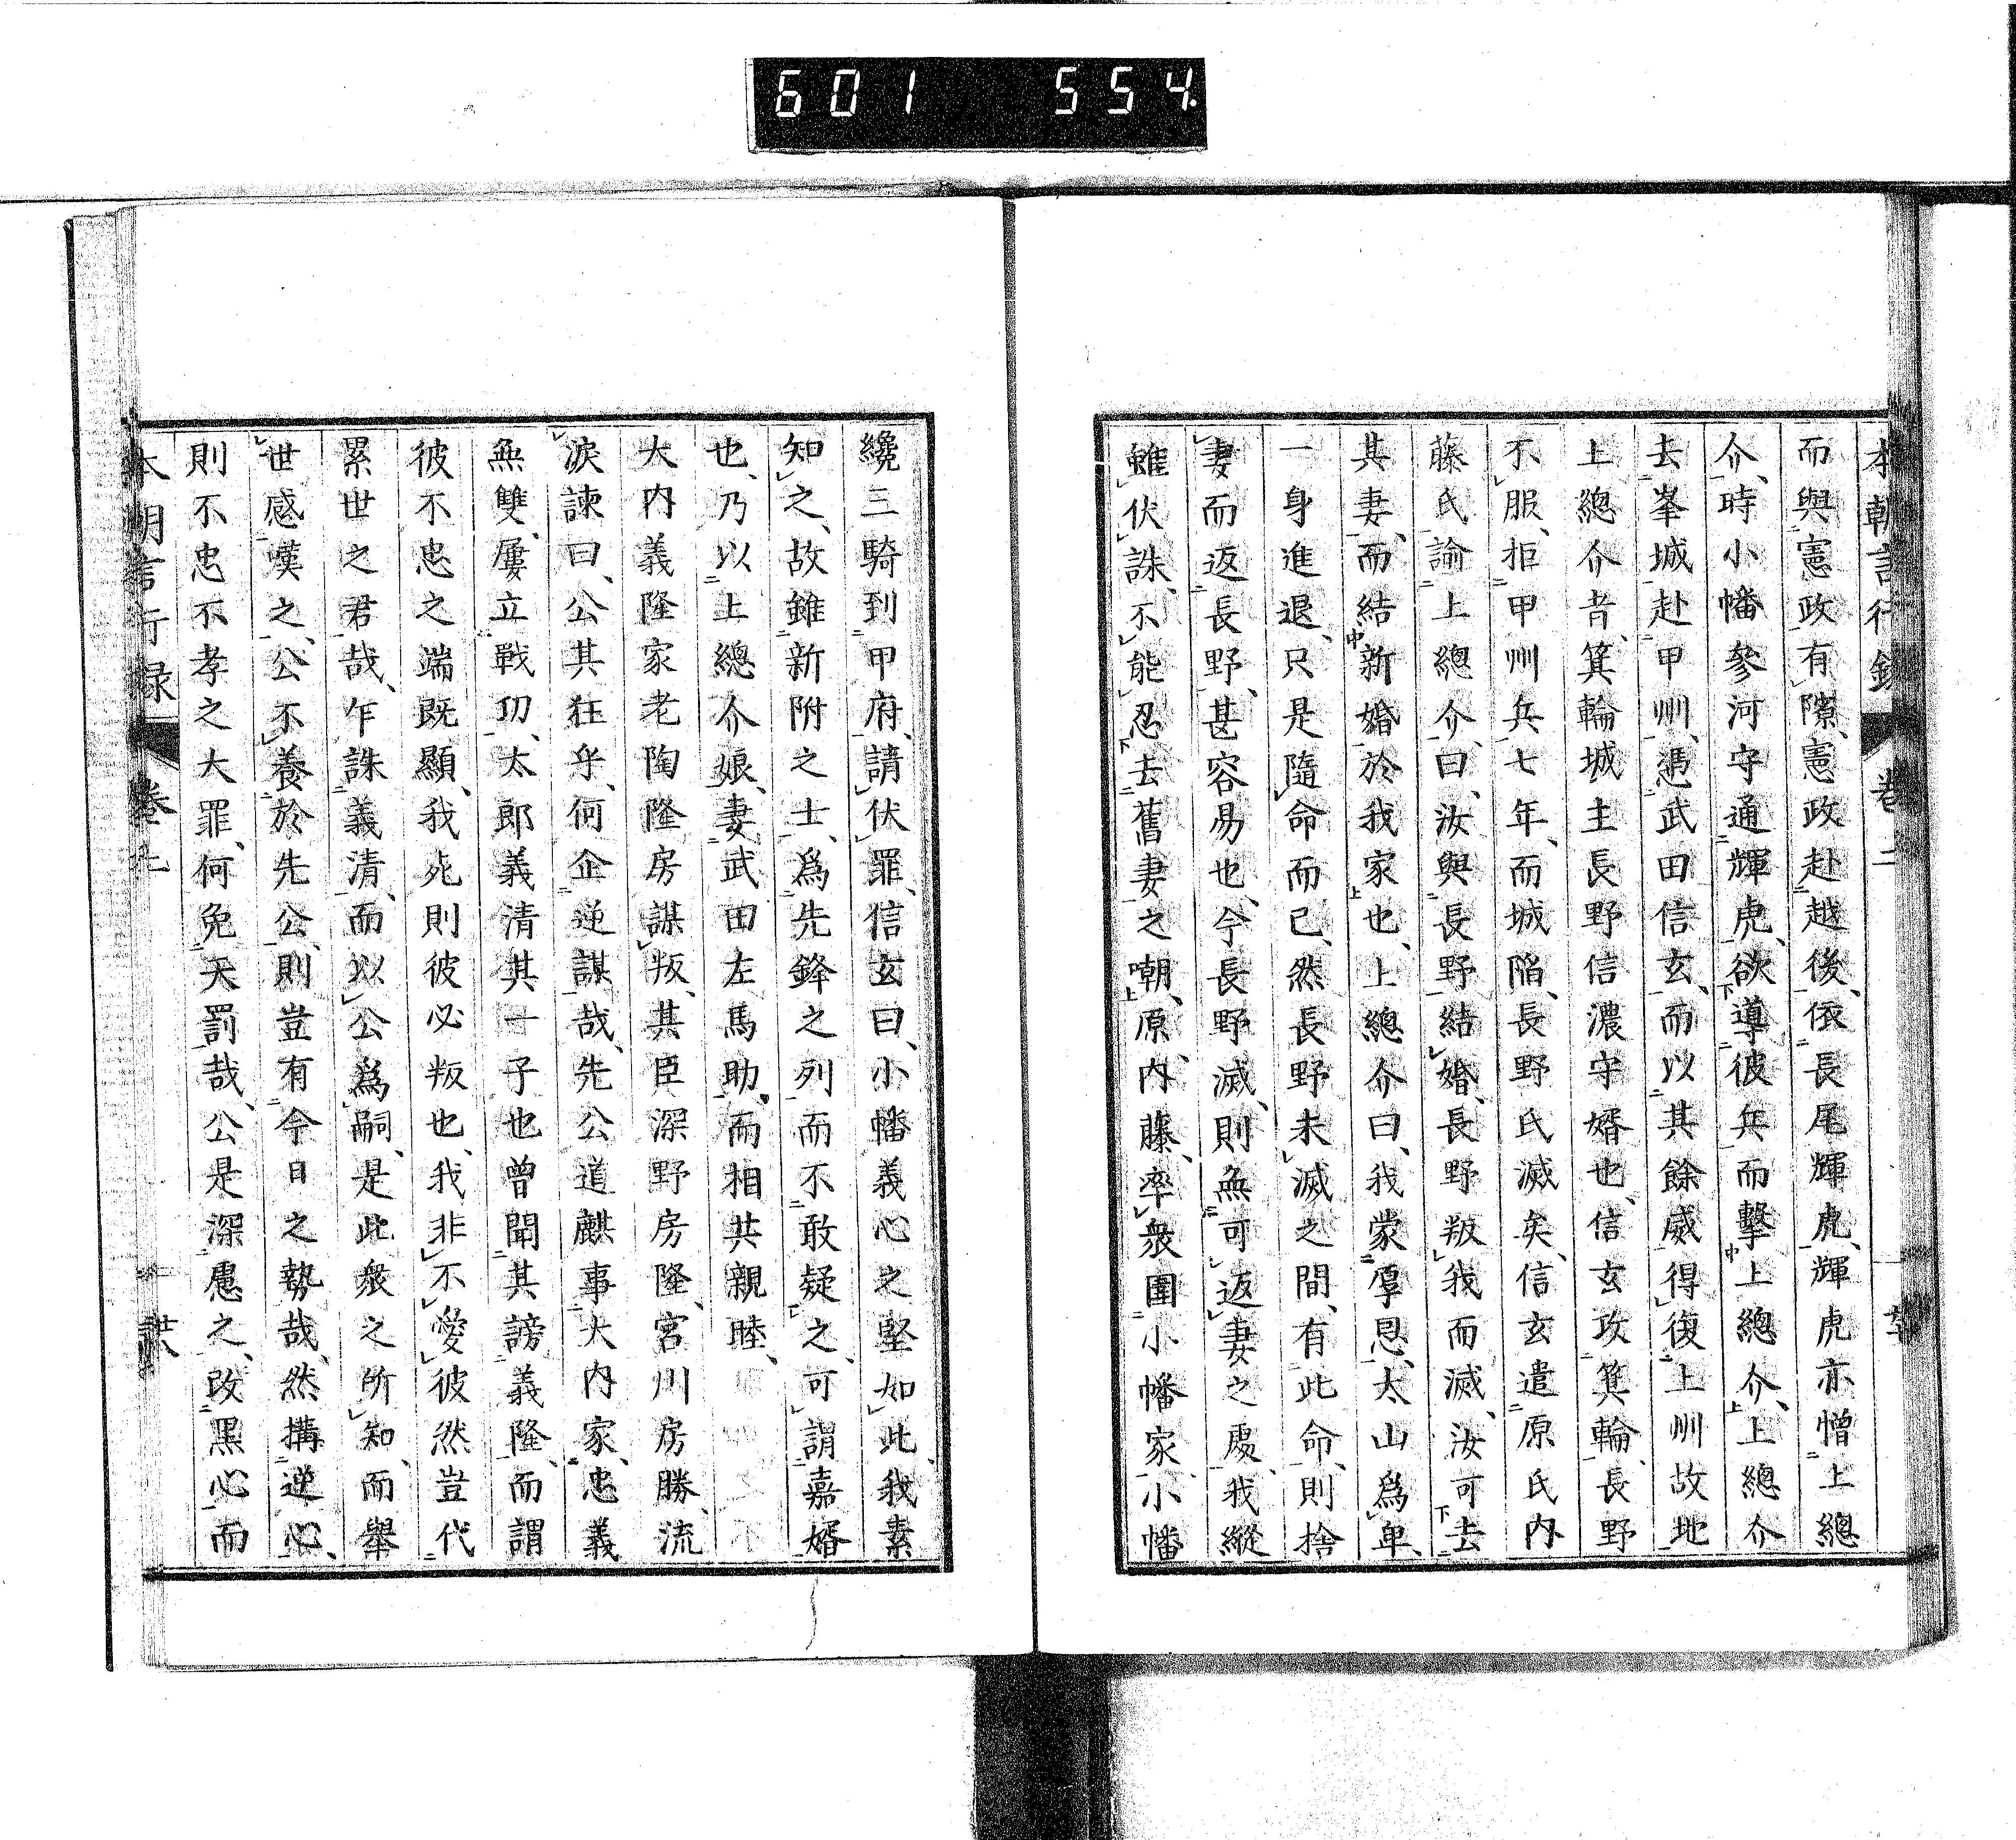 601 554
本朝言行錄 卷二
而與憲政有隙、憲政赴越後、依長尾輝虎、輝虎亦憎上總
介、時小幡參河守通輝虎、欲導彼兵而擊上總介、上總介
去峯城赴甲州、憑武田信玄、而以其餘威得復上州故地
上總介者、箕輪城主長野信濃守婿也、信玄攻箕輪、長野
不服、拒甲州兵七年、而城陷、長野氏滅矣、信玄遣原氏内
藤氏諭上總介、曰、汝與長野結婚、長野叛我而滅、汝可去
其妻、而結新婚於我家也、上總介曰、我蒙厚恩、太山爲卑、
一身進退、只是隨命而已、然長野未滅之間、有此命、則捨
妻而返長野、甚容易也、今長野滅、則無可返妻之處、我縱
雖伏誅、不能忍去舊妻之嘲、原、内藤、率衆圍小幡家、小幡
纔三騎到甲府、請伏罪、信玄曰、小幡義心之堅如此、我素
知之、故雖新附之士、爲先鋒之列而不敢疑之、可謂嘉婿
也、乃以上總介娘、妻武田左馬助、而相共親睦、
大内義隆家老陶隆房謀叛、其臣深野房隆、宮川房勝、流
淚諫曰、公其狂乎、何企逆謀哉、先公道麒事大内家、忠義
無雙、屢立戰功、太郎義清其一子也曾聞其謗義隆、而謂
彼不忠之端既顯、我死則彼必叛也、我非不愛彼然豈代
累世之君哉、乍誅義清、而以公爲嗣、是此衆之所知、而舉
世感嘆之、公不養於先公、則豈有今日之勢哉、然搆逆心、
則不忠不孝之大罪、何免天罰哉、公是深慮之、改黑心而
本朝言行錄 卷二